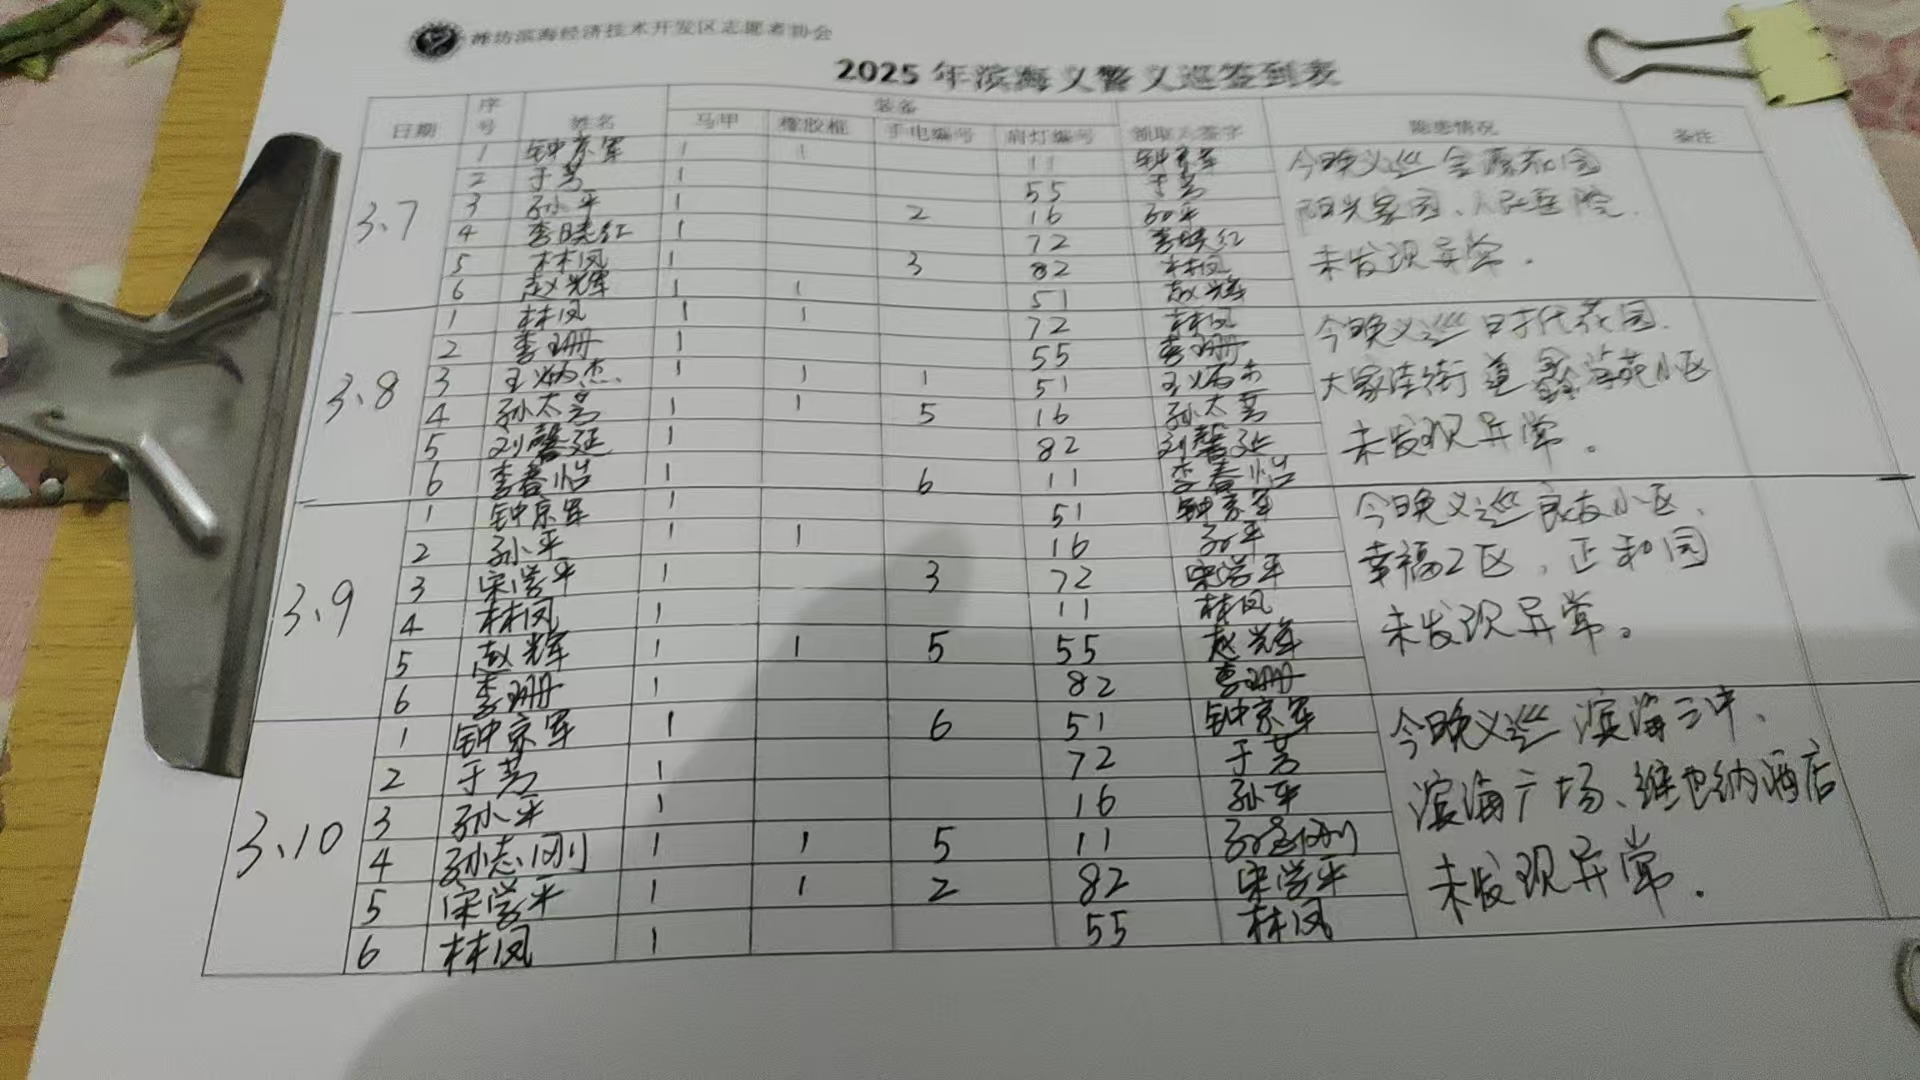 潍坊滨海经济技术开发区志愿者协会
2025 年滨海义警义巡签到表
日期 序号 姓名 装备 隐患情况 备注
马甲 橡胶棍 手电编号 肩灯编号 领取人签字
3.7
1 钟京军 1 1 11 钟京军
2 于芳 1 55 于芳
3 孙平 1 2 16 孙平
4 李晓红 1 72 李晓红
5 林凤 1 3 82 林凤
6 赵辉 1 1 51 赵辉
今晚义巡金源和园
阳光家园、人民医院.
未发现异常.
3.8
1 林凤 1 1 72 林凤
2 李珊 1 55 李珊
3 王炳杰 1 1 1 51 王炳杰
4 孙太芳 1 1 5 16 孙太芳
5 刘馨延 1 82 刘馨延
6 李春怡 1 6 11 李春怡
今晚义巡时代花园.
大家洼街道鑫海苑小区
未发现异常.
3.9
1 钟京军 1 51 钟京军
2 孙平 1 1 16 孙平
3 宋学平 1 3 72 宋学平
4 林凤 1 11 林凤
5 赵辉 1 1 5 55 赵辉
6 李珊 1 82 李珊
今晚义巡良友小区、
幸福2区、正和园
未发现异常。
3.10
1 钟京军 1 6 51 钟京军
2 于芳 1 72 于芳
3 孙平 1 16 孙平
4 孙志刚 1 1 5 11 孙志刚
5 宋学平 1 1 2 82 宋学平
6 林凤 1 55 林凤
今晚义巡滨海三中、
滨海广场、维也纳酒店
未发现异常.